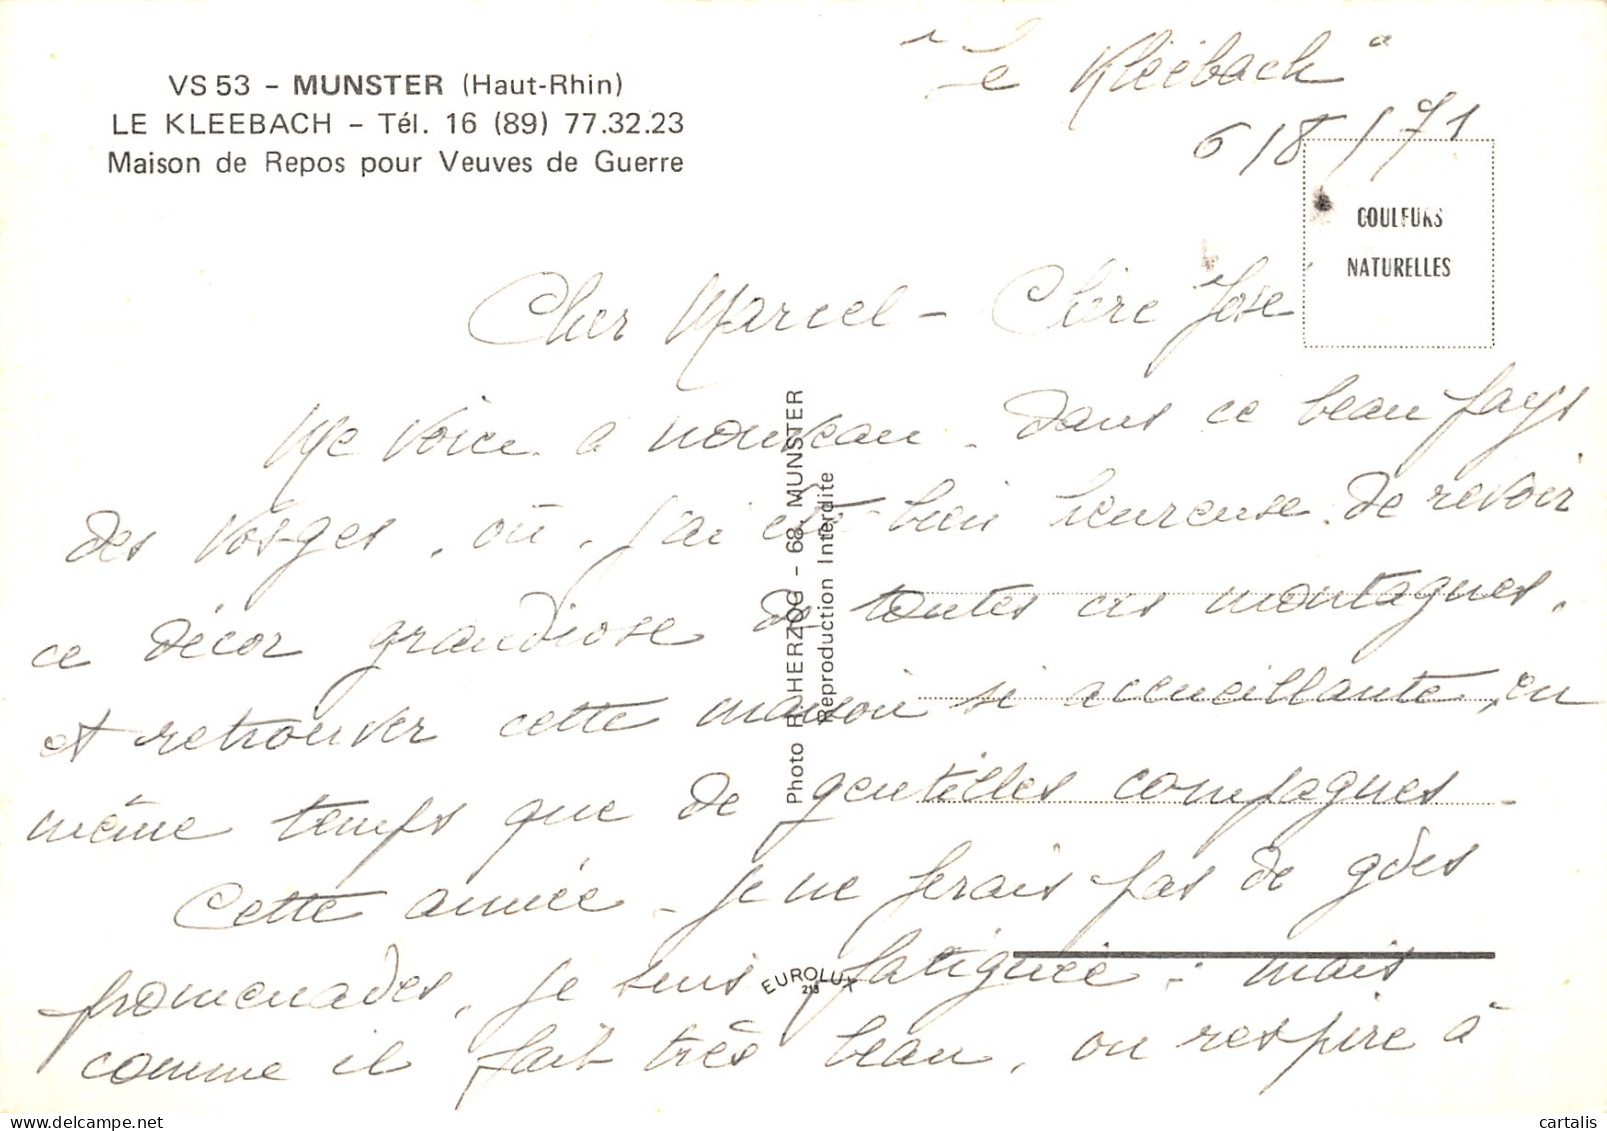 VS 53 - MUNSTER (Haut-Rhin)
LE KLEEBACH - Tél. 16 (89) 77.32.23
Maison de Repos pour Veuves de Guerre
"Le Kléébach"
6/8/71
COULEURS
NATURELLES
Cher Marcel - Chère José
Me voici à nouveau - dans ce beau pays
des Vosges, où, j'ai été bien heureuse de revoir
ce décor grandiose de toutes ces montagnes,
et retrouver cette maison si accueillante, en
même temps que de gentilles compagnes.
Cette année - je ne ferais pas de gdes
promenades, je suis fatiguée : mais
comme il fait très beau, on respire à
Photo R. HERZOG - 68 MUNSTER
Reproduction Interdite
EUROLUX
213
delcampe.net
cartalis